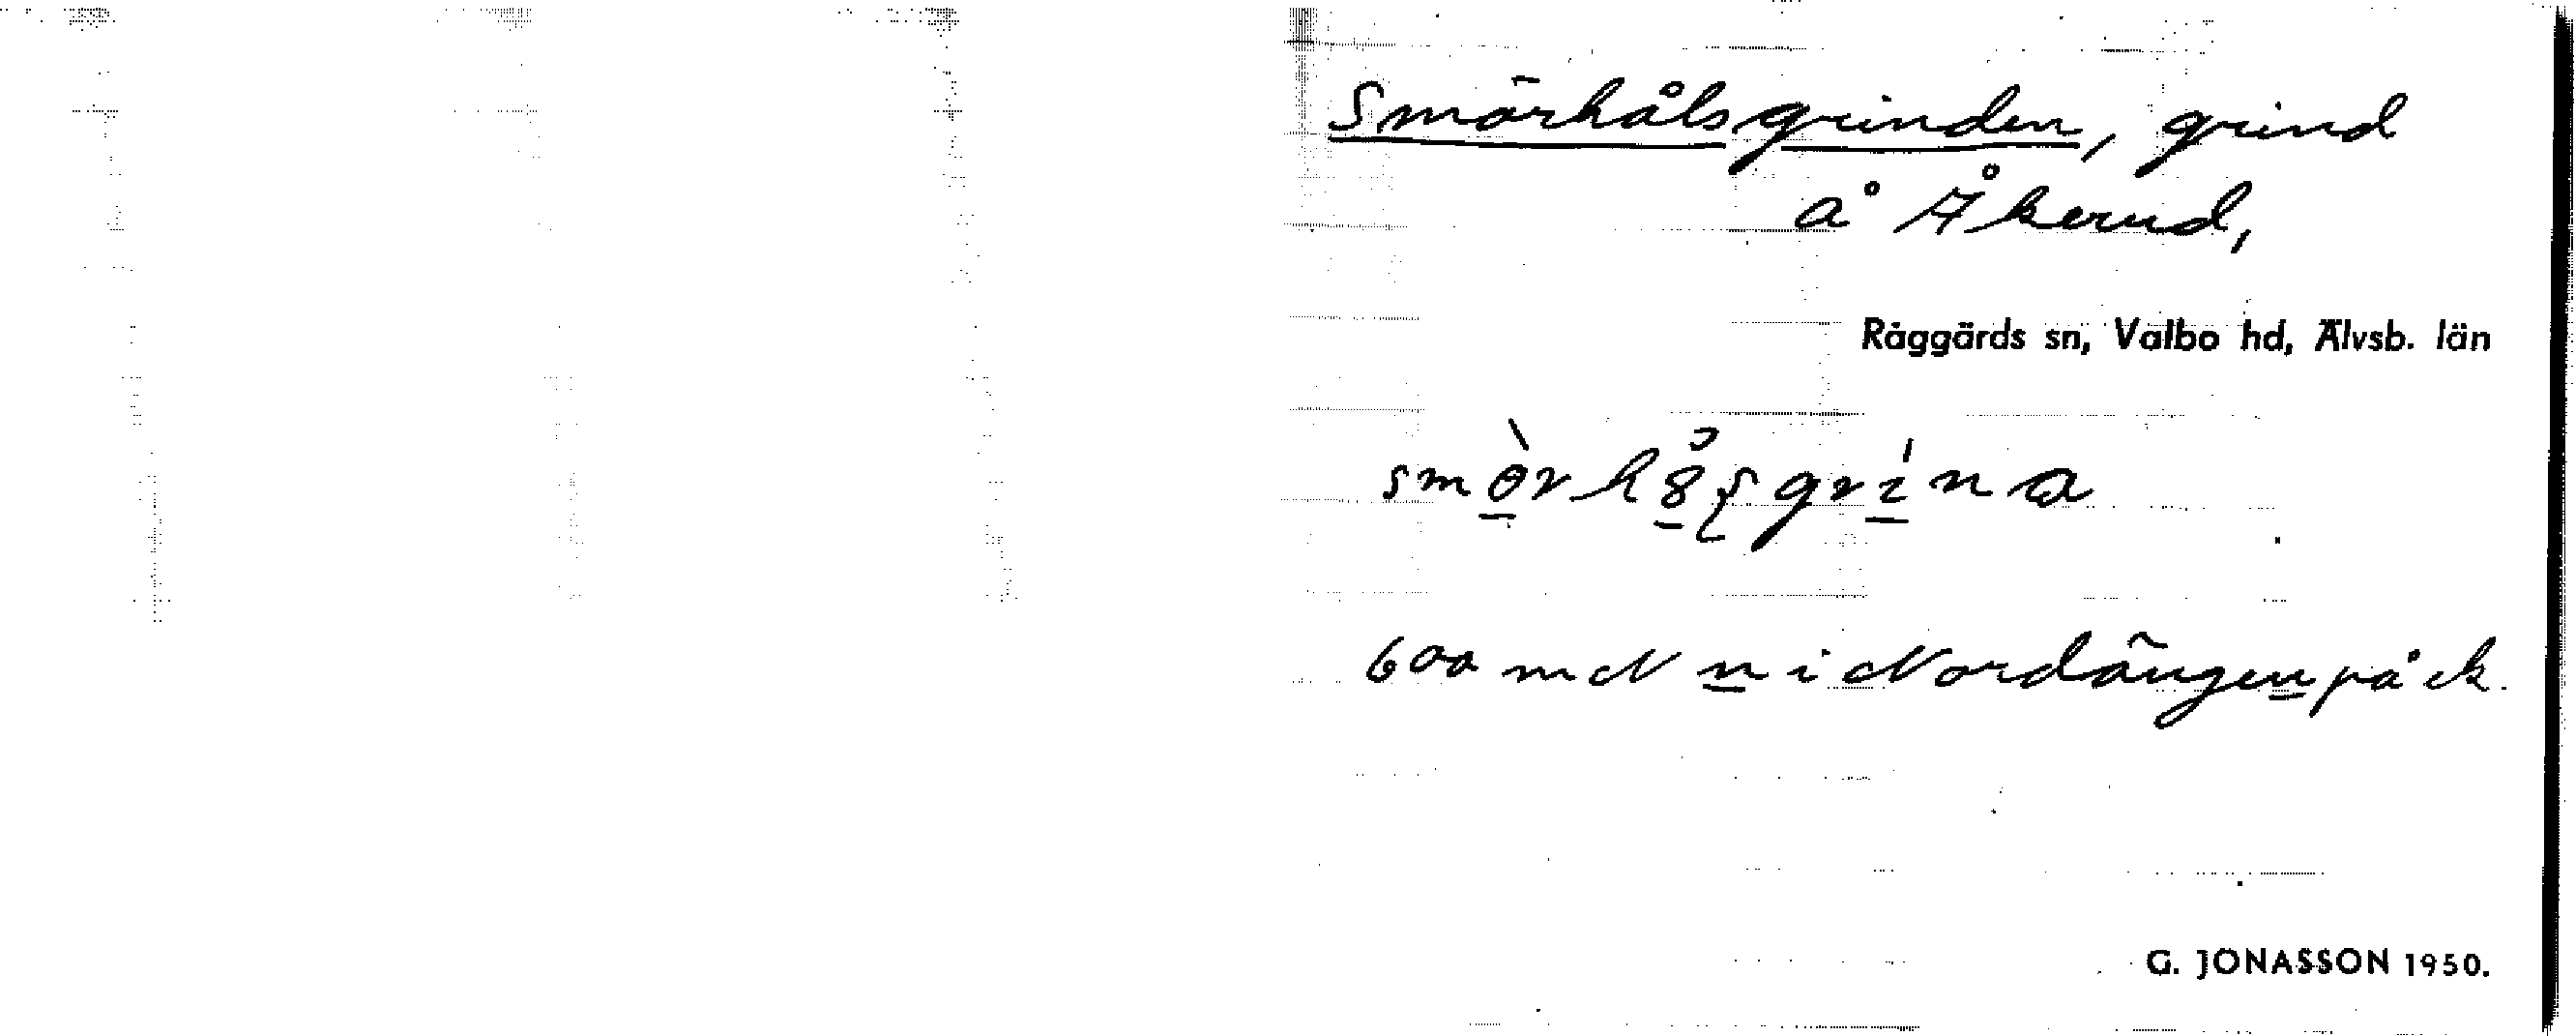 Smörhålsgrinden, grind
å Åkerud,
Råggärds sn, Valbo hd, Älvsb. län
600 m N n i Nordängen på ek.
G. JONASSON 1950.